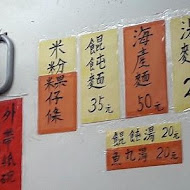 海產麵
50元
餛飩麵
35元
米粉
粿仔條
餛飩湯 20元
魚丸湯 20元
外帶